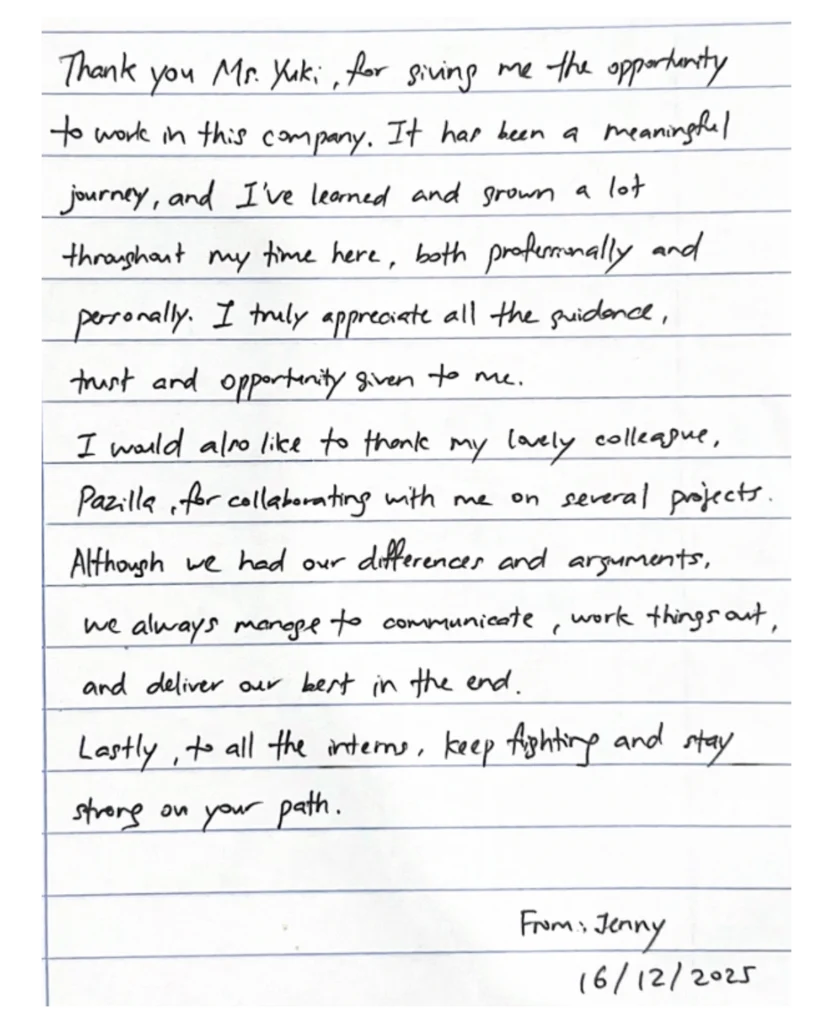 Thank you Mr. Yuki, for giving me the opportunity
to work in this company. It has been a meaningful
journey, and I've learned and grown a lot
throughout my time here, both professionally and
personally. I truly appreciate all the guidance,
trust and opportunity given to me.
I would also like to thank my lovely colleague,
Pazilla, for collaborating with me on several projects.
Although we had our differences and arguments,
we always manage to communicate, work things out,
and deliver our best in the end.
Lastly, to all the interns, keep fighting and stay
strong on your path.
From: Jenny
16/12/2025